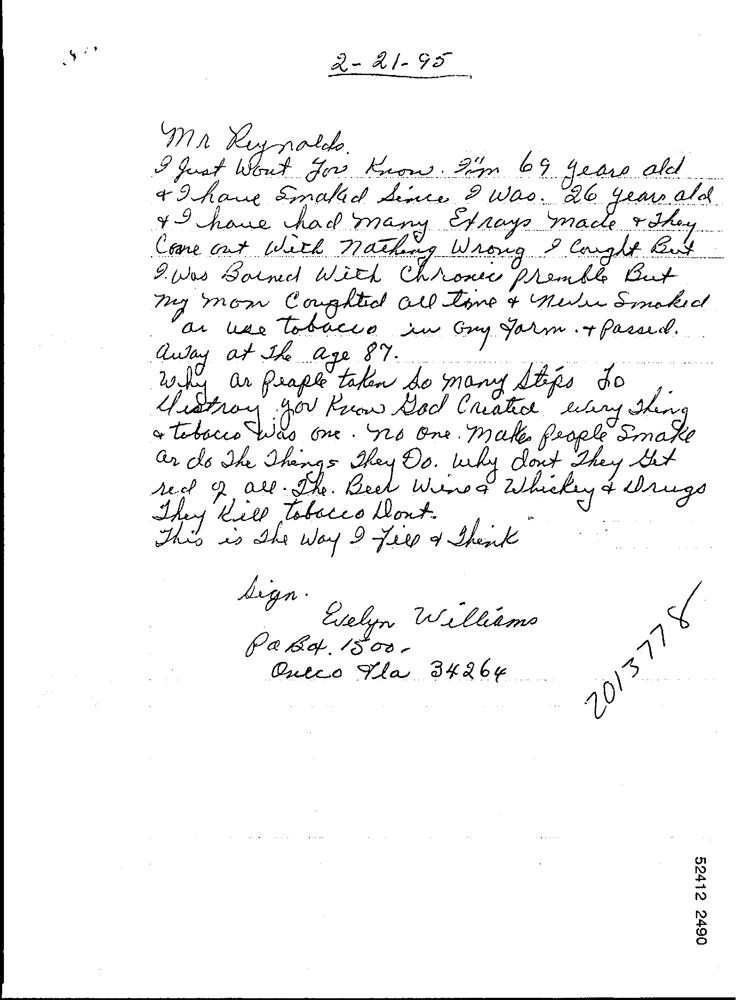 2-21-95
Mr Reynolds.
I Just Want You Know. I'm 69 years old
& I have Smoked Since I was. 26 years old
& I have had many Exrays made & They
Come out With Nothing Wrong I Cought But
I Was Borned With Chronic premble But
my mom Coughted all time & Never Smoked
or use tobacco in any Form. & Passed.
away at the age 87.
Why ar people taken so many Steps To
distroy you Know God Created every thing
& tobacco was one. No one. Makes people Smoke
or do The Things They Do. Why dont They Get
red of all. The. Beer Wine & Whiskey & Drugs
They Kill tobacco Dont.
This is the Way I Fill & Think
Sign.
Evelyn Williams
Po Box. 1500-
Oneco Fla 34264
2013778
52412 2490